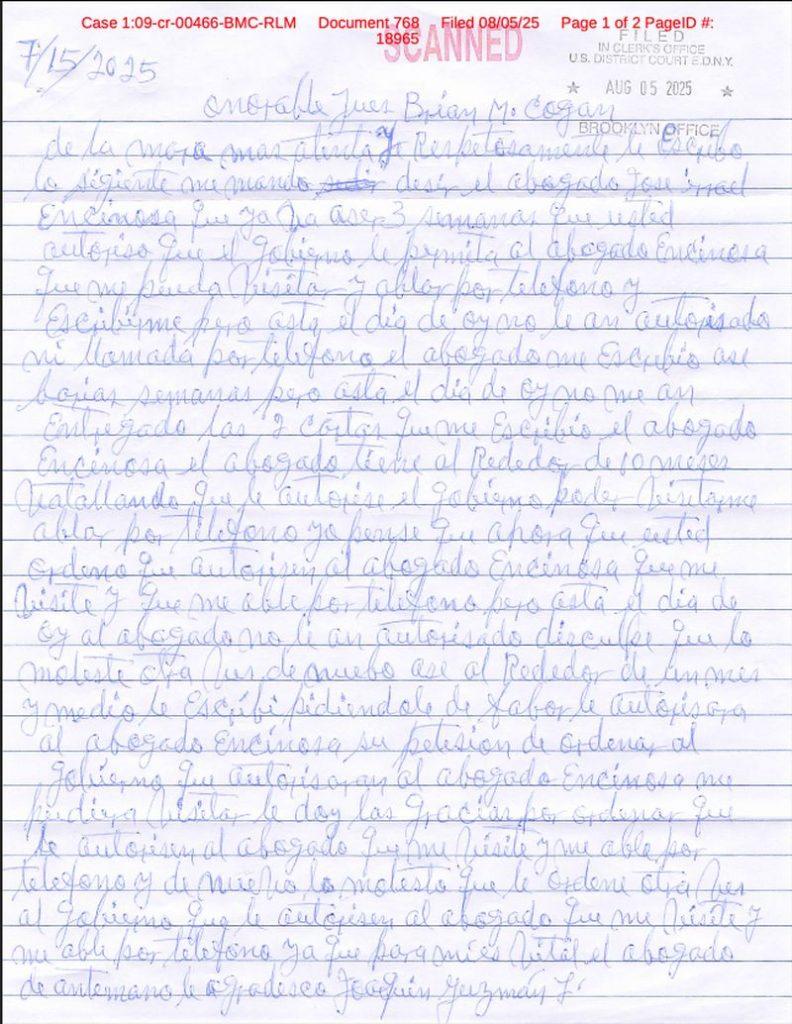 Case 1:09-cr-00466-BMC-RLM Document 768 Filed 08/05/25 Page 1 of 2 PageID #:
18965
SCANNED
FILED
IN CLERK'S OFFICE
U.S. DISTRICT COURT E.D.N.Y.
★ AUG 05 2025 ★
BROOKLYN OFFICE
7/15/2025
onorable Jues Brian M. Cogan
de la mara mas atenta y Respetosamente le Escribo
lo sigiente me mando desir el abogado Jose
Encinosa que ya ba aser 3 semanas que usted
autoriso que el gobierno le permita al abogado Encinosa
que me pueda Visitar y ablar por telefono y
Escribirme pero asta el dia de oy no le an autorisado
ni llamada por telefono el abogado me Escribio ase
barias semanas pero asta el dia de oy no me an
Entregado las 2 cartas que me Escribio el abogado
Encinosa el abogado tiene al Rededor de 10 meses
Vatallando que le autorise el gobierno poder Visitarme
ablar por telefono yo pense que ahora que usted
ordeno que autorisen al abogado Encinosa que me
Visite y que me able por telefono pero asta el dia de
oy al abogado no le an autorisado disculpe que lo
moleste otra Ves de nuebo ase al Rededor de un mes
y medio le Escribi pidiendole de fabor le autorisara
al abogado Encinosa su petesion de ordenar al
gobierno que autorisaran al abogado Encinosa me
pudiera Visitar le doy las gracias por ordenar que
le autorisen al abogado que me Visite y me able por
telefono y de nuebo lo molesto que le ordene otra Ves
al gobierno que le autorisen al abogado que me Visite y
me able por telefono ya que para mi es Vital el abogado
de antemano le agradesco Joaquin Guzmán L.